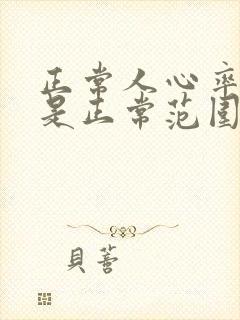 正常人心率
是正常范围
貝蕾